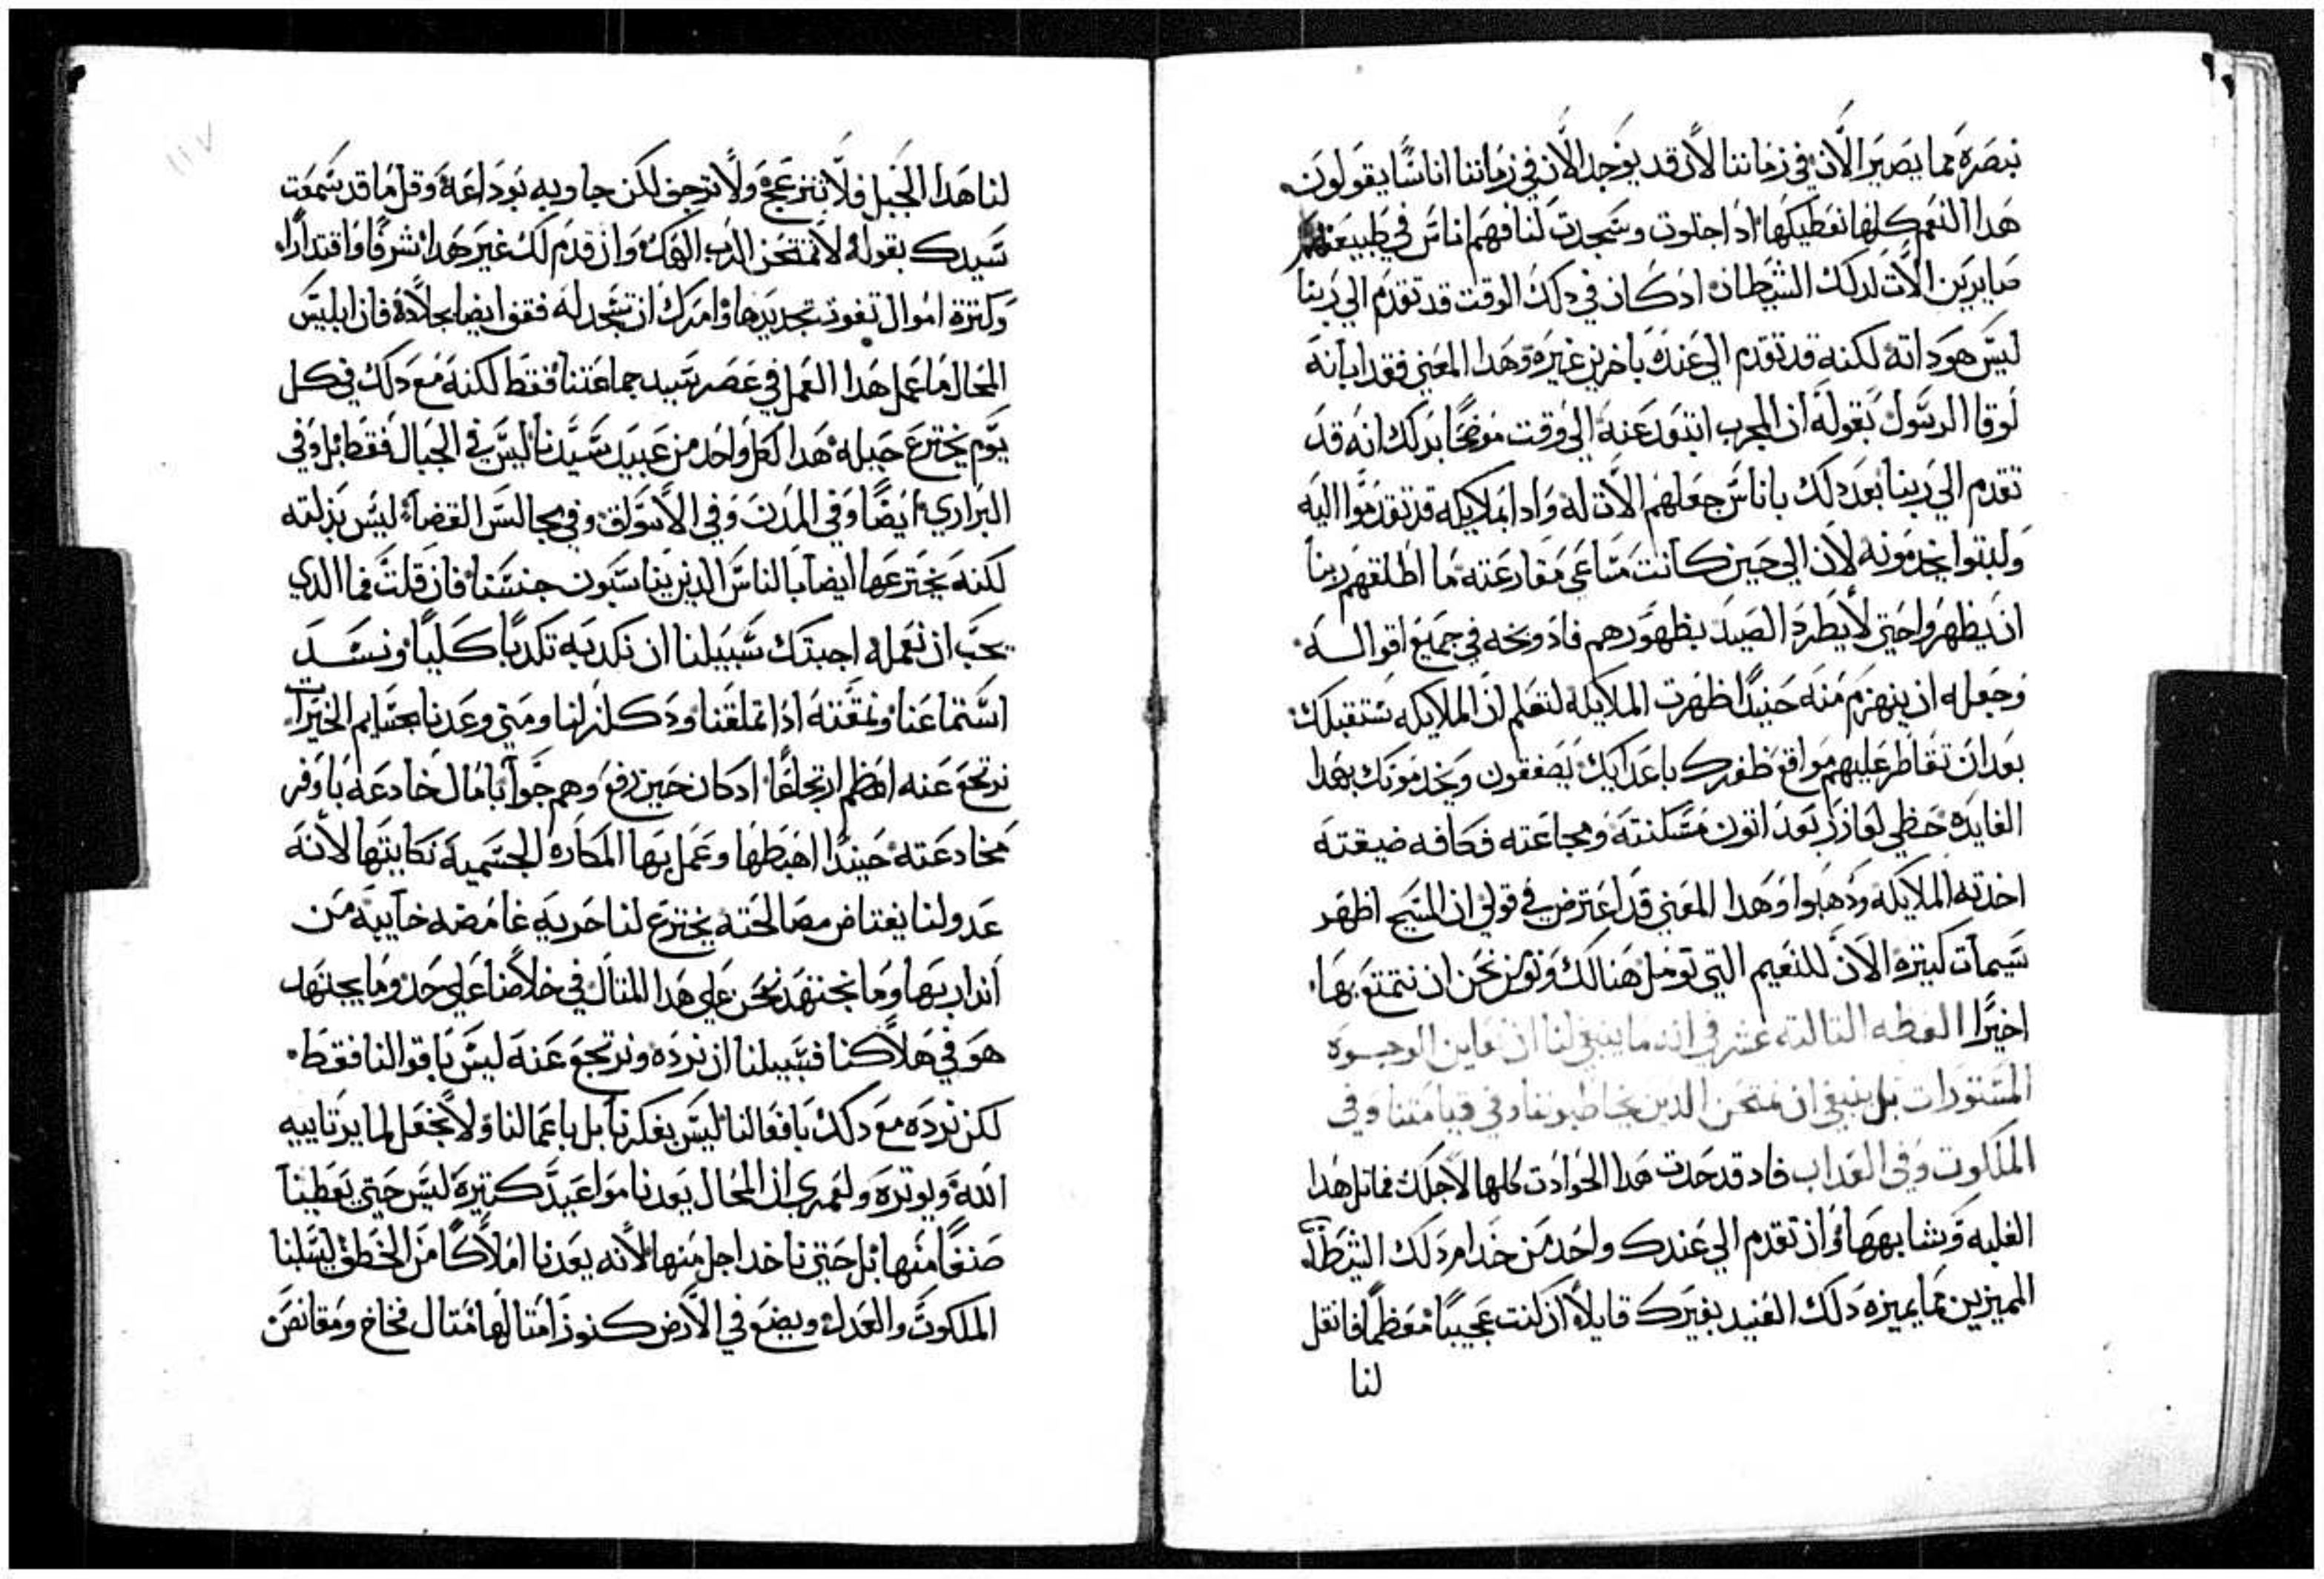 نبصره مما يصير الآن في زماننا لأن قد يوجد الآن في زماننا اناسًا يقولون
هدا النعم كلها نعطيكها اد اجلوت وسجدت لنا فهم اناس في طبيعتهم
صايرين الات لدلك الشيطان ادكان في دلك الوقت قد تقدم الي ربنا
ليس هو داته لكنه قد تقدم الي عنده باخرين غيره وهدا المعني فقد ابانه
لوقا الرسول بقوله ان المجرب ابتعد عنه الي وقت موضحًا بدلك انه قد
تقدم الي ربنا بعد دلك باناس جعلهم الات له وادا بملايكه قد تقدموا اليه
ولبتوا يخدمونه لأن الي حين كانت مساعي مقارعته ما اطلقهم ربنا
ان يظهروا حتي لا يطرد الصيد بظهورهم فاد وبخه في جميع اقواله
وجعله ان ينهزم منه حينيدًا ظهرت الملايكه لتعلم ان الملايكه ستقبلك
بعد ان تقاطر عليهم مواقع ظفرك باعدايك يصفقون ويخدمونك بهدا
الفايده حظي لعازر بعد اتون مسكنته ومجاعته وكافه ضيقته
اخدته الملايكه ودهبوا وهدا المعني قد اعترض في قولي ان المسيح اظهر
سيمات كتيره الآن للنعيم التي نومل هنالك ونوتر نحن ان نتمتع بها
اخيرًا العظه التالته عشر في انه ما ينبغي لنا ان نعاين الوجوه
المستورات بل ينبغي ان نمتحن الدين يخاطبوننا وفي قيامتنا وفي
الملكوت وفي العداب فاد قد حدت هدا الحوادت كلها لاجلك فماتل هدا
الغلبه وشابهها وان تقدم الي عندك واحد من خدام دلك الشيطان
المميزين مما يميزه دلك العنيد بغيرك قايلاً ان كنت عجيبًا معظمًا فانقل
لنا
١١٧
لنا هدا الجبل فلا تنزعج ولا ترجف لكن جاوبه بوداعه وقل ما قد سمعت
سيدك بقوله لا تمتحن الرب الهك وان قدم لك غير هدا شرفًا واقتدارًا
وكترة اموال تفوت تحديدها وامرك ان تسجد له فقف ايضا بجلادة فان ابليس
المحال ما عمل هدا العمل في عصر سيد جماعتنا فقط لكنه مع دلك في كل
يوم يخترع حيله هدا لكل واحد من عبيد سيدنا ليس في الجبال فقط بل وفي
البراري ايضًا وفي المدن وفي الأسواق وفي مجالس القضاء ليس بدلته
لكنه يخترعها ايضا بالناس الدين يناسبون جنسنا فان قلت فما الدي
يجب ان نعمله اجبتك سبيلنا ان نكدبه تكدبًا كليًا ونسد
استماعنا ونمقته ادا تملقنا ودكل لنا ومتي وعدنا بجسايم الخيرات
نرتجع عنه اعظم ارتجاعًا ادكان حين رفع وهم حوآ بامال خادعه باوفر
مخادعته حينيدًا اهبطها وعمل بها المكاره الجسميه نكايتها لأنه
عدو لنا يعتاض مصالحته يخترع لنا حربه غامضه خآيبه من
اندار بها وما نجتهد نحن علي هدا المتال في خلاصنا علي حدو ما يجتهد
هو في هلاكنا فسبيلنا ان نرده ونرتجع عنه ليس باقوالنا فقط
لكن نرده مع دلك بافعالنا ليس بفكرنا بل باعمالنا ولا نجعل لما يرتاييه
الله ويوتره ولعمري ان المحال يعدنا مواعيد كتيره ليس حتي يعطينا
صنفًا منها بل حتي ناخد اجل منها لأنه يعدنا املاكًا من الخطف ليسلبنا
الملكوت والعدل ويضع في الأرض كنوز امتالها متال فخاخ ومقانص